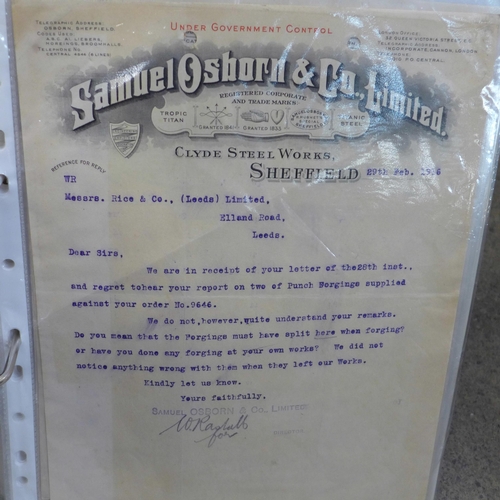 UNDER GOVERNMENT CONTROL
TELEGRAPHIC ADDRESS:
OSBORN, SHEFFIELD.
CODES USED:
A.B.C. A.I. LIEBERS,
MARCONIGS, BROOMHALLS.
TELEPHONE NO
TELEGRAPHIC ADDRESS
Samuel Osborn & Co., Limited.
REGISTERED CORPORATE
AND TRADE MARKS:
TROPIC
TITAN
GRANTED
GRANTED
STEEL
CLYDE STEEL WORKS,
SHEFFIELD
29th Feb. 1916
REFERENCE FOR REPLY
WR
Messrs. Rice & Co., (Leeds) Limited,
Elland Road,
Leeds.
Dear Sirs,
We are in receipt of your letter of the28th inst..
and regret tohear your report on two of Punch Forgings supplied
against your order No.9646.
We do not,however,quite understand your remarks.
Do you mean that the Forgings must have split here when forging?
or have you done any forging at your own works? We did not
notice anything wrong with them when they left our Works.
Kindly let us know.
Yours faithfully.
SAMUEL OSBORN & CO., LIMITED
for